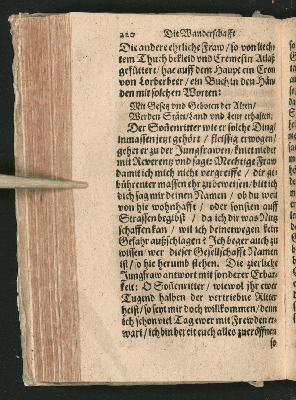 220 Die Wanderschafft
Die andere ehrliche Fraw / so von liech-
tem Thuch bekleid vnd Cremesin Atlaß
gefüttert / hat auff dem Haupt ein Cron
von Lorbeerbeer / ein Buch in den Hän-
den mit solchen Worten:
Mit Gesetz vnd Geboten der Alten /
Werden Stätt / Land vnd Leut erhalten.
Der Soñenritter wie er solche Ding /
inmassen jetzt gehört / fleissig erwogen /
gehet er zu der Jungfrawen / kniet nieder
mit Reverentz vnd sagt: Mechtige Fraw
damit ich mich nicht vergreiffe / dir ge-
bührenter massen ehr zu beweisen / bitt ich
dich sag mir deinen Namen / ob du weit
von hie wohnhafft / oder sonsten auff
Strassen begibst / da ich dir was Nutz
schaffen kan / wil ich deinetwegen kein
Gefahr außschlagen? Ich beger auch zu
wissen / wer dieser Gesellschafft Namen
ist / so hie herumb stehen. Die zierliche
Jungfraw antwort mit sonderer Erbar-
keit: O Soñenritter / wiewol jhr ewer
Tugend halben der vertriebne Ritter
heist / so seyt mir doch willkommen / denn
ich schon viel Tag ewer mit Frewden er-
wart / ich bin bereit euch alles zu eröffnen
so